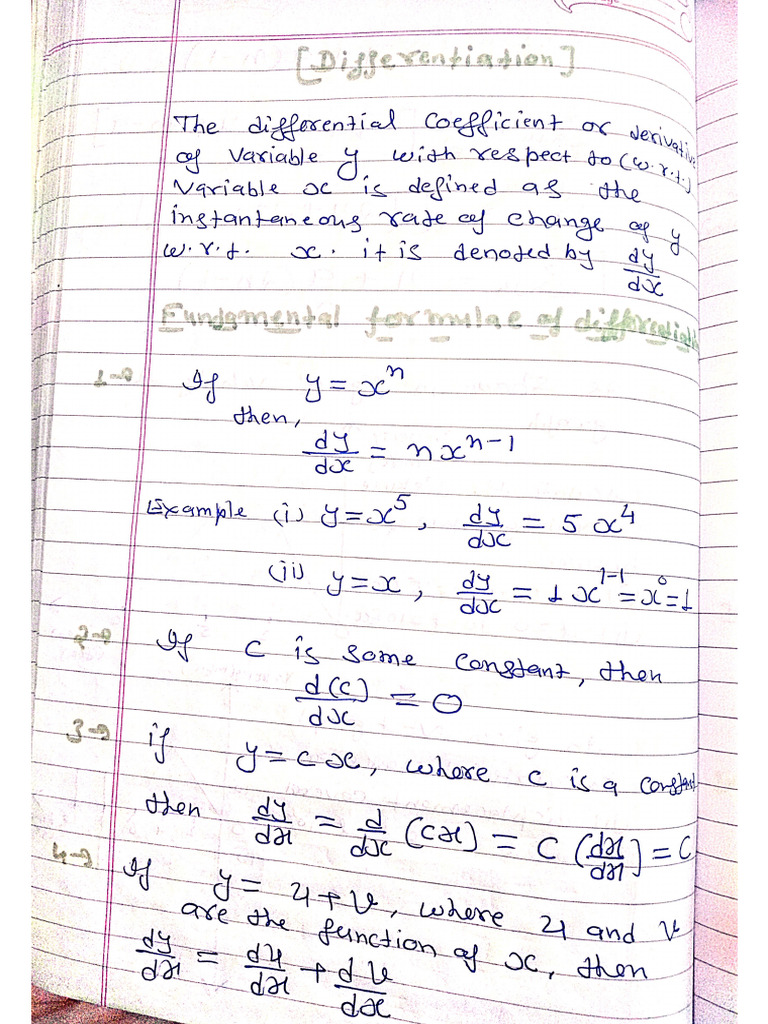 [Differentiation]
The differential Coefficient or derivative
of variable y with respect to (w.r.t.)
Variable x is defined as the
instantaneous rate of change of y
w.r.t. x. it is denoted by dy/dx
Fundamental formulae of differentiation
1→ If y = xⁿ
then,
dy/dx = nxⁿ⁻¹
Example (i) y=x⁵, dy/dx = 5x⁴
(ii) y=x, dy/dx = 1x¹⁻¹=x⁰=1
2→ If C is some constant, then
d(c)/dx = 0
3→ if y=cx, where c is a constant
then dy/dx = d/dx (cx) = C (dx/dx) = C
4→ If y= u+v, where u and v
are the function of x, then
dy/dx = du/dx + dv/dx